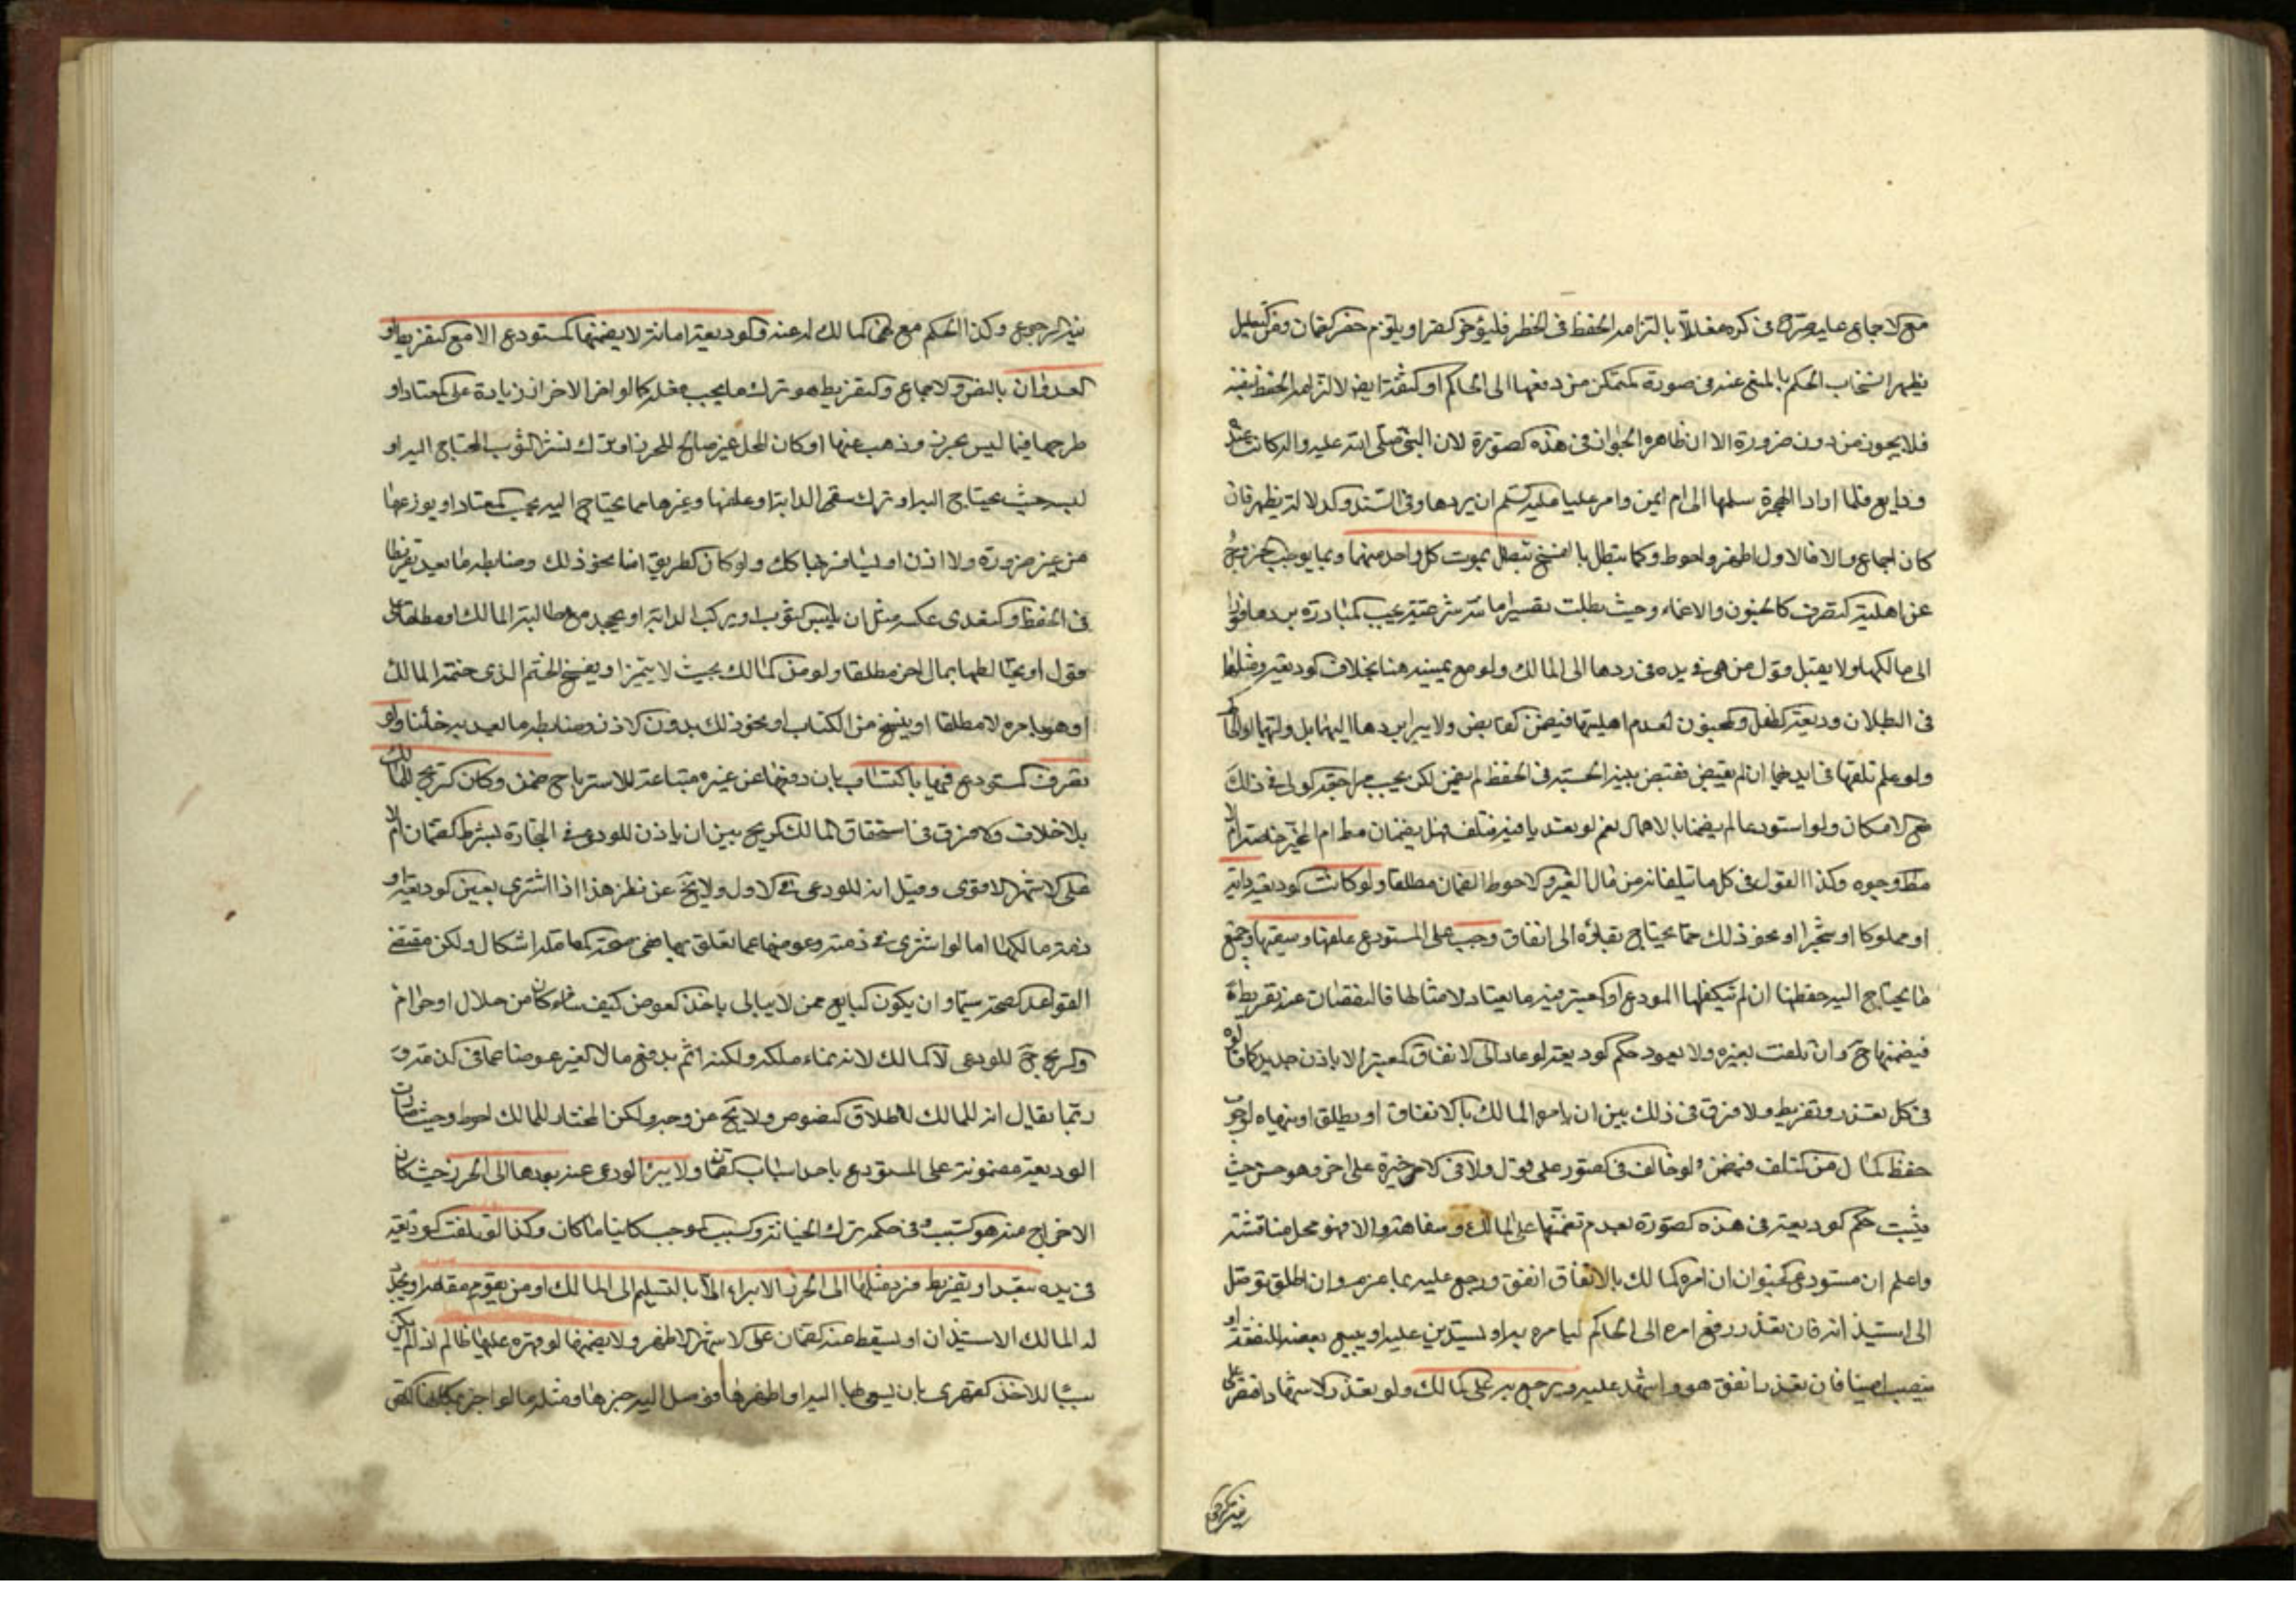 مع الاجماع عليه صرح في كره معللا بالتزامه الحفظ في الحظر فليؤخر السفر او يلتزم خفر الضمان وفي التعليل
يظهر انسحاب الحكم بالمنع عنه في صورة التمكن من دفعها الى الحاكم او الثقة ايضا لالتزامه الحفظ بنفسه
فلا يجوز من دون ضرورة الا ان ظاهره الجواز في هذه الصورة لان النبي صلى الله عليه واله كانت عنده
ودايع فلما اراد الهجرة سلمها الى ام ايمن وامر عليا عليه السلم ان يردها وفي السند والدلالة نظر فان
كان اجماع والا فالاول اظهر واحوط وكما تبطل بالفسخ تبطل بموت كل واحد منهما وبما يوجب خروجه
عن اهلية التصرف كالجنون والاغماء وحيث بطلت تصير امانة شرعية يجب المبادرة بردها فورا
الى مالكها ولا يقبل قول من هي في يده في ردها الى المالك ولو مع يمينه هنا بخلاف الوديعة ومثلها
في البطلان وديعة الطفل والمجنون لعدم اهليتها فيضمن القابض ولا يبرا بردها اليهما بل وليهما او الحاكم
ولو علم تلفها في ايديهما ان لم يقبض فقبض بنية الحسبة في الحفظ لم يضمن لكن يجب مراجعة الولي في ذلك
مع الامكان ولو استودعا لم يضمنا بالاهمال نعم لو تعديا فيه فتلف فهل يضمنان مط ام المميز خاصة ام لا
مط وجوه وكذا القول في كل ما يتلفانه من مال الغير والاحوط الضمان مطلقا ولو كانت الوديعة دابة
او مملوكا او شجرا او نحو ذلك مما يحتاج بقاؤه الى انفاق وجب على المستودع علفها وسقيها وجميع
ما يحتاج اليه حفظها ان لم يتكفلها المودع او المعتبر فيه ما يعتاد لامثالها فالنقصان عنه تفريط
فيضمنها ح وان تلفت بغيره ولا يعود حكم الوديعة لو عاد الى الانفاق المعتبر الا باذن جديد كما قالوه
في كل تعد وتفريط ولا فرق في ذلك بين ان يامره المالك بالانفاق او يطلق او ينهاه لوجوب
حفظ المال من التلف فيضمن لو خالف في الصور على قول ولا في الاخيرة على اخر وهو حسن حيث
يثبت حكم الوديعة في هذه الصورة بعدم تضمنها على المالك وسفاهته والا فهو محل مناقشة
واعلم ان مستودع الحيوان ان امره المالك بالانفاق انفق ورجع عليه بما عزم وان اطلق توصل
الى استيذانه فان تعذر رفع امره الى الحاكم ليامره به او يستدين عليه او يبيع بعضه للنفقة او
ينصب امينا فان تعذر انفق هو واشهد عليه ويرجع به على المالك ولو تعذر الاشهاد اقتصر على
نية الرجوع
نية الرجوع وكذا الحكم مع نهي المالك له عنه والوديعة امانة لا يضمنها المستودع الا مع التفريط او
العدوان بالنص والاجماع والتفريط هو ترك ما يجب فعله كالو اخر الاحراز زيادة على المعتاد او
طرحها فيما ليس بحرز وذهب عنها او كان المحل غير صالح للحرز او ترك نشر الثوب المحتاج اليه او
لبسه حيث يحتاج اليه او ترك سقي الدابة او علفها وغيرها مما يحتاج اليه بحسب المعتاد او يودعها
من غير ضرورة ولا اذن او يسافر بها كك ولو كان الطريق امنا ونحو ذلك وضابطه ما يعد تفريطا
في الحفظ والتعدي عكسه مثل ان يلبس الثوب او يركب الدابة او يجحد مع مطالبة المالك او مطلقا على
قول او يخالطها بمال اخر مطلقا ولو من المالك بحيث لا يتميز او يفسخ الختم الذي ختمه المالك
او هو بامره لا مطلقا او ينسخ من الكتاب او نحو ذلك بدون الاذن وضابطه ما يعد به خائنا ولو
تصرف المستودع فيها باكتساب بان دفعها عن غيره متباعة للاسترباح ضمن وكان الربح للمالك
بلا خلاف ولا فرق في استحقاق المالك الربح بين ان ياذن للودعي في التجارة بشرط الضمان ام لا
على الاشهر الاقوى وقيل انه للودعي في الاول ولا يخ عن نظر هذا اذا اشترى بعين الوديعة او
ذمة مالكها اما لو اشترى في ذمته وعوضها عما تعلق بها ففي صحة المعاملة اشكال ولكن مقتضى
القواعد الصحة سيما وان يكون البايع ممن لا يبالي باخذ العوض كيف شاء كان من حلال او حرام
والربح ح للودعي لا المالك لانه نماء ملكه ولكنه اثم بدفع مال الغير عوضا عما في ذمته و
ربما يقال انه للمالك لاطلاق النصوص ولا يخ عن وجه ولكن المختار للمالك احوط وحيث صارت
الوديعة مضمونة على المستودع باحد اسباب الضمان ولا يبرا الودعي عنه بردها الى الحرز حيث كان
الاخراج منه هو السبب في حكمه ترك الخيانة والسبب الموجب كاينا ما كان وكذا لو تلفت الوديعة
في يده بتعد او تفريط فرد مثلها الى الحرز الابراء الا بالتسليم الى المالك او من يقوم مقامه او يجدد
له المالك الاستيذان او يسقط عنه الضمان على الاشهر الاظهر ولا يضمنها لو قهره عليها ظالم اذ لم يكن
سببا للاخذ القهري بان يسعى بها اليه او اظهرها فوصل اليه خبرها ومثله ما لو اخبر بمكانها اللص